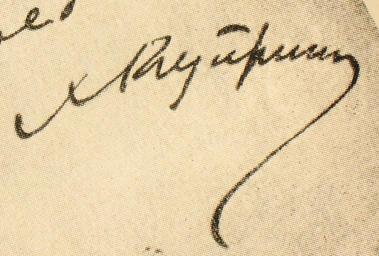 А Куприн